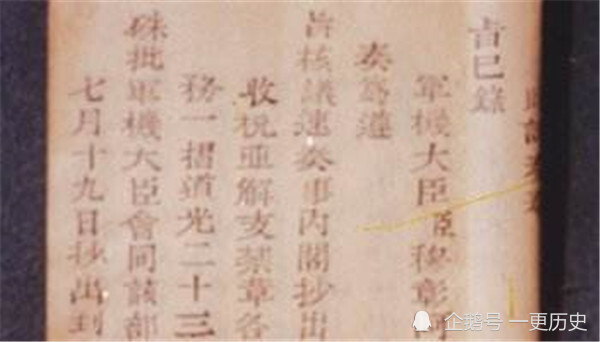 旨已錄
軍機大臣臣穆彰
奏爲遵
旨核議速奏事内閣抄出
收税亜解支禁章各
務一摺道光二十三
硃批軍機大臣會同該部
七月十九日抄出到
企鹅号 一更历史